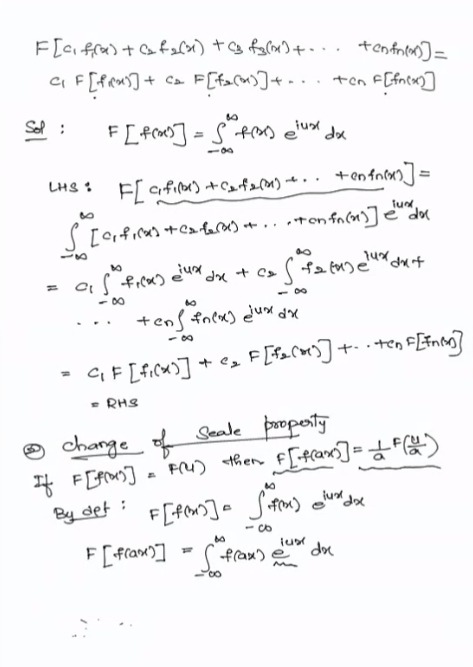 F[c₁ f₁(x) + c₂ f₂(x) + c₃ f₃(x) + ... + cn fn(x)] =
c₁ F[f₁(x)] + c₂ F[f₂(x)] + ... + cn F[fn(x)]
Sol : F[f(x)] = ∫_{-∞}^{∞} f(x) e^{iux} dx
LHS : F[c₁f₁(x) + c₂f₂(x) + ... + cnfn(x)] =
∫_{-∞}^{∞} [c₁f₁(x) + c₂f₂(x) + ... + cnfn(x)] e^{iux} dx
= c₁ ∫_{-∞}^{∞} f₁(x) e^{iux} dx + c₂ ∫_{-∞}^{∞} f₂(x) e^{iux} dx +
... + cn ∫_{-∞}^{∞} fn(x) e^{iux} dx
= c₁ F[f₁(x)] + c₂ F[f₂(x)] + ... + cn F[fn(x)]
= RHS
② change of Scale property
If F[f(x)] = F(u) then F[f(ax)] = 1/a F(u/a)
By def : F[f(x)] = ∫_{-∞}^{∞} f(x) e^{iux} dx
F[f(ax)] = ∫_{-∞}^{∞} f(ax) e^{iux} dx